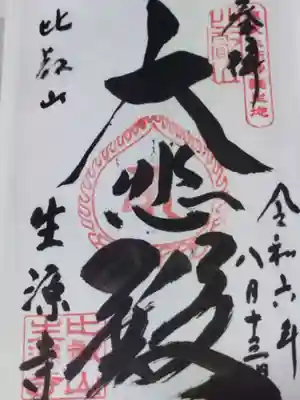 奉拝
令和六年
八月十三日
大悲殿
比叡山
生源寺